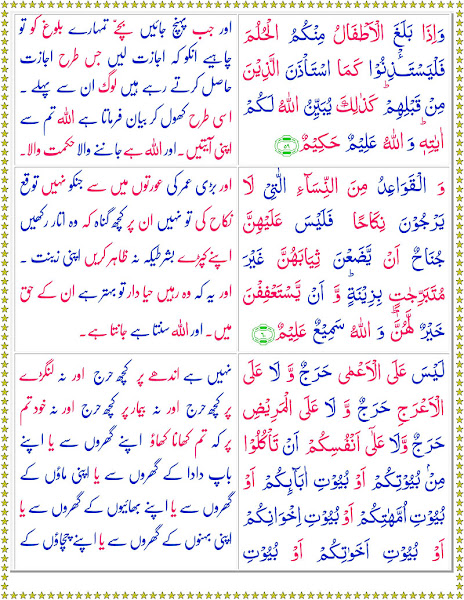 وَاِذَا بَلَغَ الْاَطْفَالُ مِنْكُمُ الْحُلُمَ
فَلْيَسْتَاْذِنُوْا كَمَا اسْتَاْذَنَ الَّذِيْنَ
مِنْ قَبْلِهِمْ ؕ كَذٰلِكَ يُبَيِّنُ اللّٰهُ لَكُمْ
اٰيٰتِهٖ ؕ وَ اللّٰهُ عَلِيْمٌ حَكِيْمٌ ﴿۵۹﴾
اور جب پہنچ جائیں بچّے تمہارے بلوغ کو تو
چاہیے انکو کہ اجازت لیں جس طرح اجازت
حاصل کرتے رہے ہیں لوگ ان سے پہلے ۔
اسی طرح کھول کر بیان فرماتا ہے اللہ تم سے
اپنی آیتیں۔ اور اللہ ہے جاننے والا حکمت والا۔
وَ الْقَوَاعِدُ مِنَ النِّسَآءِ الّٰتِيْ لَا
يَرْجُوْنَ نِكَاحًا فَلَيْسَ عَلَيْهِنَّ
جُنَاحٌ اَنْ يَّضَعْنَ ثِيَابَهُنَّ غَيْرَ
مُتَبَرِّجٰتٍۭ بِزِيْنَةٍ ؕ وَ اَنْ يَّسْتَعْفِفْنَ
خَيْرٌ لَّهُنَّ ؕ وَ اللّٰهُ سَمِيْعٌ عَلِيْمٌ ﴿۶۰﴾
اور بڑی عمر کی عورتوں میں سے جنکو نہیں توقع
نکاح کی تو نہیں ان پر کچھ گناہ کہ وہ اتار رکھیں
اپنے کپڑے بشرطیکہ نہ ظاہر کریں اپنی زینت ۔
اور یہ کہ وہ رہیں حیا دار تو بہتر ہے ان کے حق
میں۔ اور اللہ سنتا ہے جانتا ہے۔
لَيْسَ عَلَى الْاَعْمٰى حَرَجٌ وَّ لَا عَلَى
الْاَعْرَجِ حَرَجٌ وَّ لَا عَلَى الْمَرِيْضِ
حَرَجٌ وَّلَا عَلٰٓى اَنْفُسِكُمْ اَنْ تَاْكُلُوْا
مِنْۢ بُيُوْتِكُمْ اَوْ بُيُوْتِ اٰبَآىِٕكُمْ اَوْ
بُيُوْتِ اُمَّهٰتِكُمْ اَوْ بُيُوْتِ اِخْوَانِكُمْ
اَوْ بُيُوْتِ اَخَوٰتِكُمْ اَوْ بُيُوْتِ
نہیں ہے اندھے پر کچھ حرج اور نہ لنگڑے
پر کچھ حرج اور نہ بیمار پر کچھ حرج اور نہ خود تم
پر کہ تم کھانا کھاؤ اپنے گھروں سے یا اپنے
باپ دادا کے گھروں سے یا اپنی ماؤں کے
گھروں سے یا اپنے بھائیوں کے گھروں سے یا
اپنی بہنوں کے گھروں سے یا اپنے چچاؤں کے